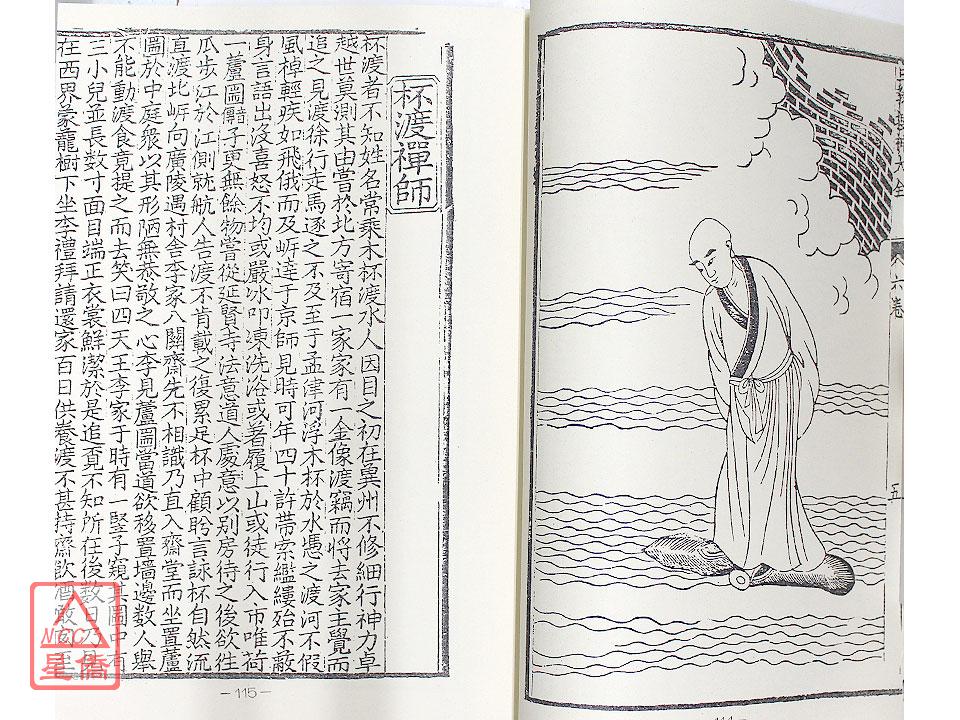 六卷
五
杯渡禪師
杯渡者不知姓名常乘木杯渡水人因目之初在兾州不修細行神力卓
越世莫測其由嘗於北方寄宿一家家有一金像渡竊而將去家主覺而
追之見渡徐行走馬逐之不及至于孟津河浮木杯於水憑之渡河不假
風棹輕疾如飛俄而及岍逹于京師見時可年四十許帶索繿縷殆不蔽
身言語出沒喜怒不均或嚴冰叩凍洗浴或著履上山或徒行入市唯荷
一蘆圌音傳子更無餘物嘗從延賢寺法意道人處意以别房待之後欲往
瓜步江於江側就航人告渡不肯載之復累足杯中顧盻言詠杯自然流
直渡北岍向廣陵遇村舍李家八關齋先不相識乃直入齋堂而坐置蘆
圌於中庭衆以其形陋無恭敬之心李見蘆圌當道欲移置墻邊数人舉
不能動渡食竟提之而去笑曰四天王李家于時有一竪子窺其圌中有
三小兒並長数寸面目端正衣裳鮮潔於是追覔不知所在後数日乃見
在西界蒙龍樹下坐李禮拜請還家百日供養渡不甚持齋飲酒噉肉至
－115－
NCC
星僑